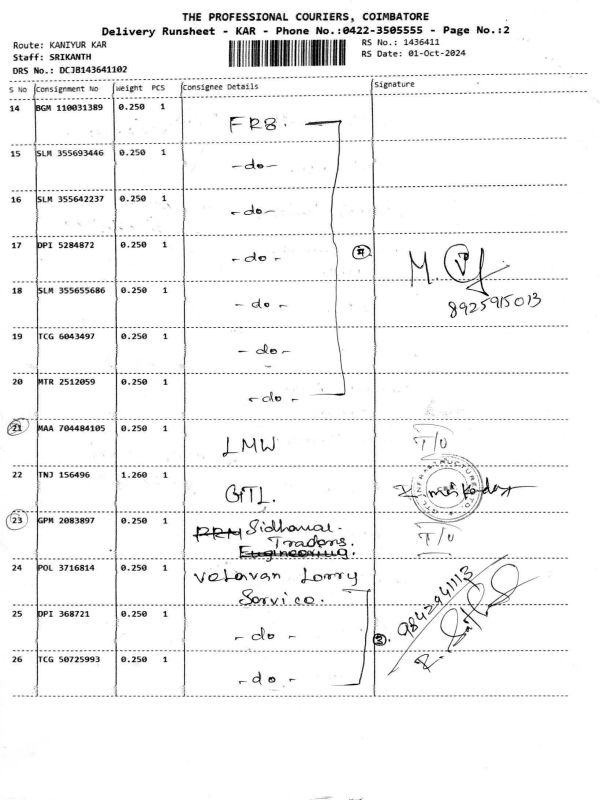 THE PROFESSIONAL COURIERS, COIMBATORE
Delivery Runsheet - KAR - Phone No.:0422-3505555 - Page No.:2
Route: KANIYUR KAR
RS No.: 1436411
Staff: SRIKANTH
RS Date: 01-Oct-2024
DRS No.: DCJB143641102
S No Consignment No Weight PCS Consignee Details Signature
14 BGM 110031389 0.250 1 FR8.
15 SLM 355693446 0.250 1 -do-
16 SLM 355642237 0.250 1 -do-
17 DPI 5284872 0.250 1 -do-
M.
18 SLM 355655686 0.250 1 -do-
8925915013
19 TCG 6043497 0.250 1 -do-
20 MTR 2512059 0.250 1 -do-
21 MAA 704484105 0.250 1 LMW T/O
22 TNJ 156496 1.260 1 GTL.
GTL INFRASTRUCTURE LTD.
23 GPM 2083897 0.250 1 Sidhanai- T/O
Traders.
Engineering.
24 POL 3716814 0.250 1 Velavan Lorry
Service.
9842941113
25 DPI 368721 0.250 1 -do-
26 TCG 50725993 0.250 1 -do-